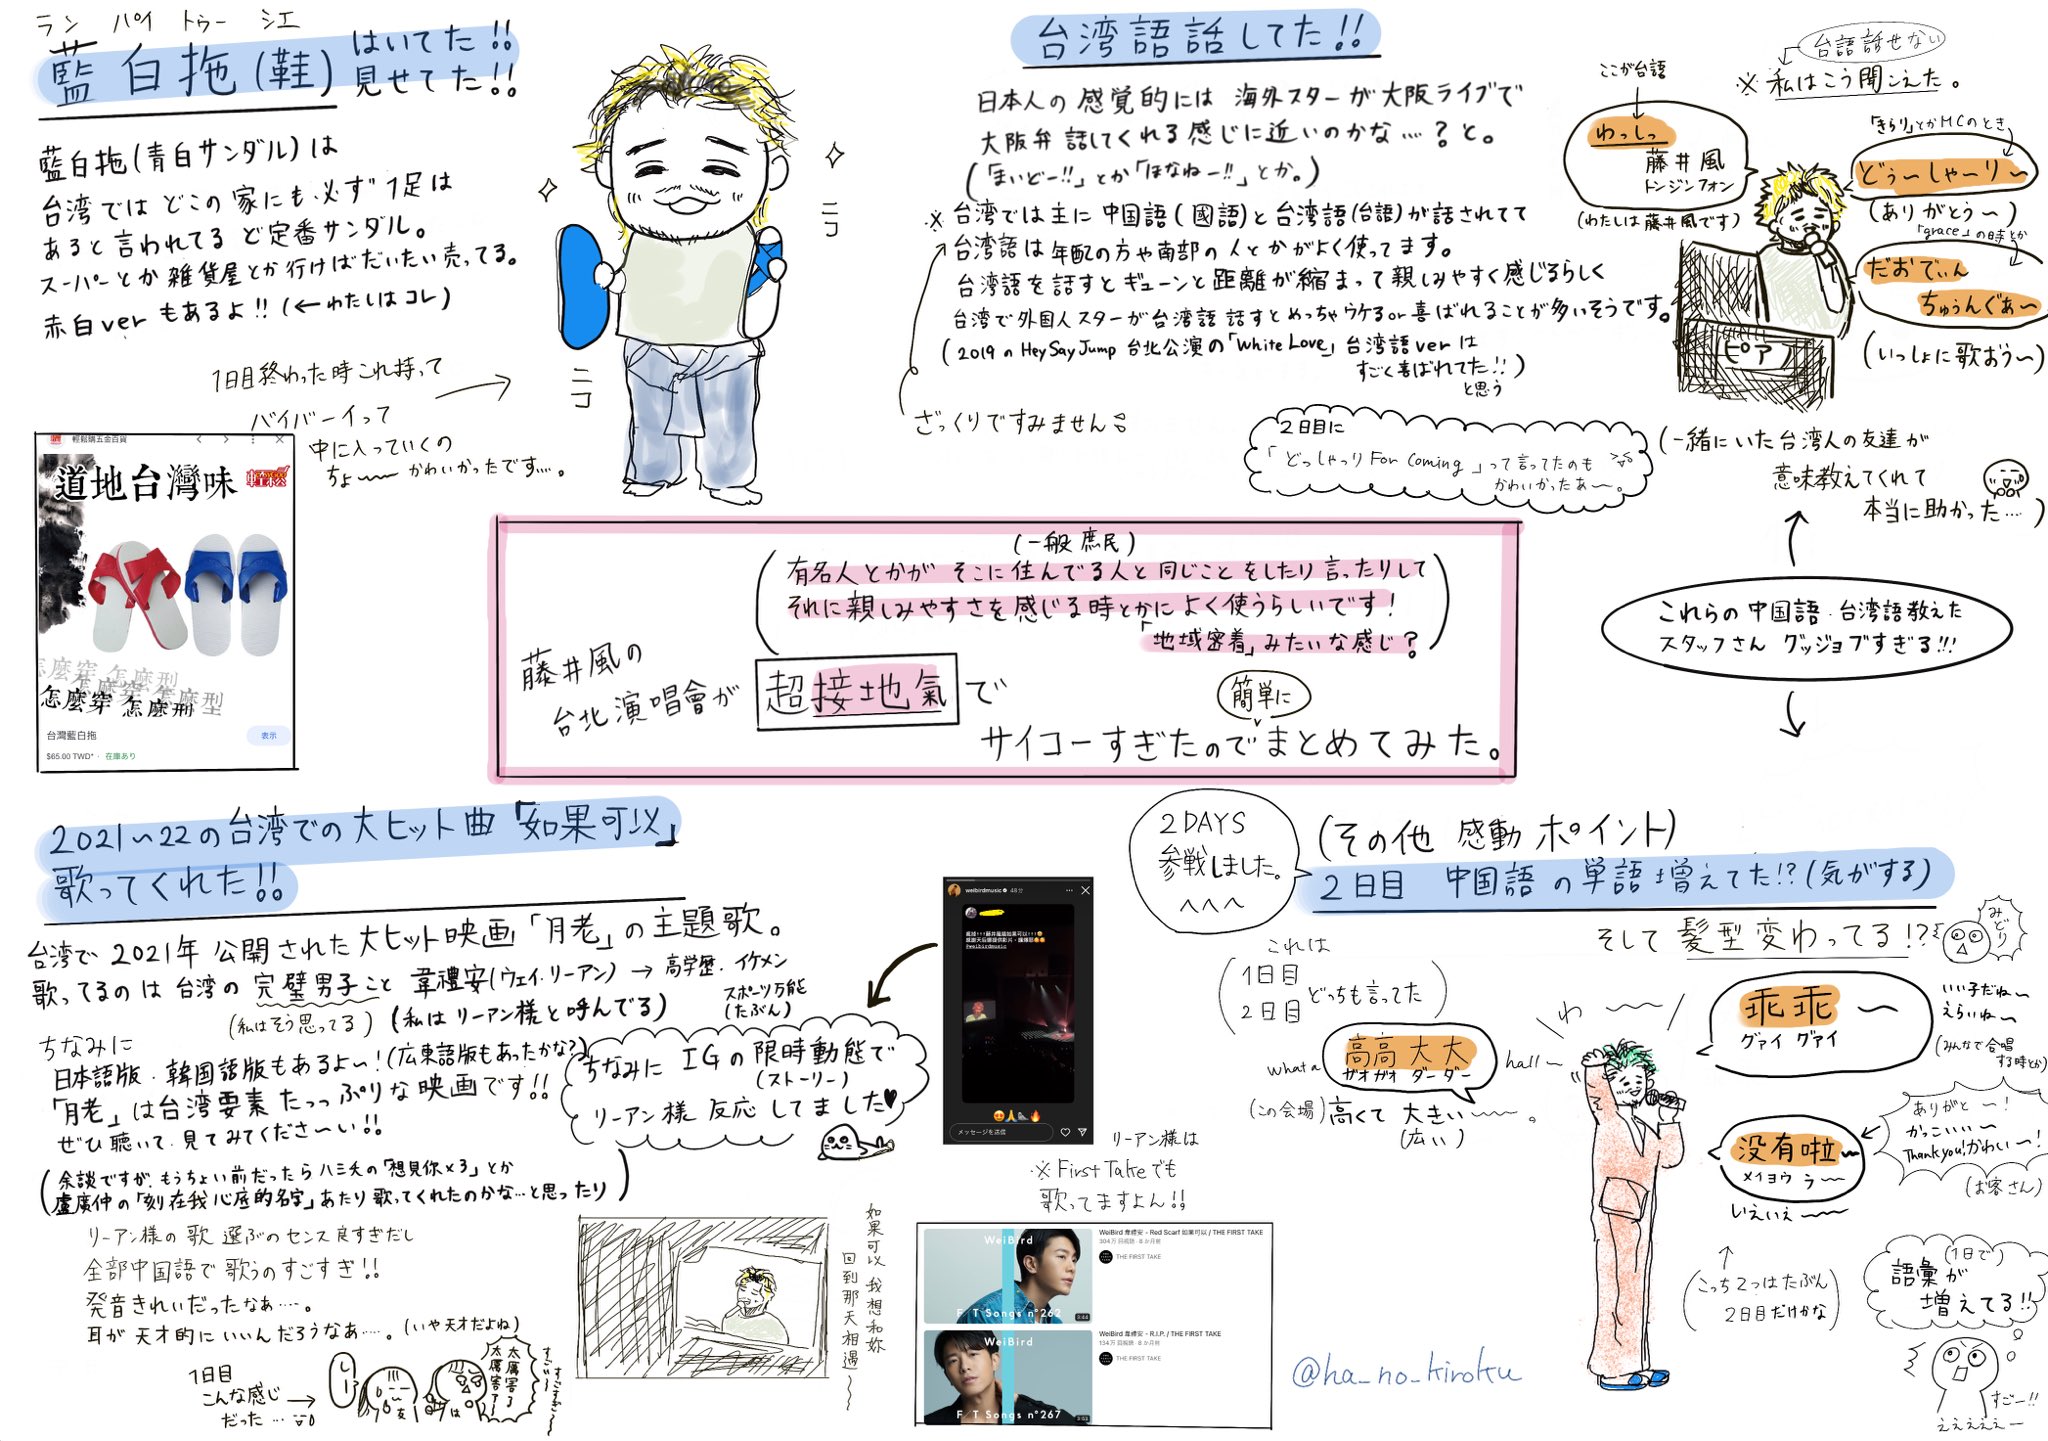 ラン パイ トゥー シエ
藍白拖(鞋)はいてた!!
見せてた!!
藍白拖(青白サンダル)は
台湾ではどこの家にも必ず1足は
あると言われてるど定番サンダル。
スーパーとか雑貨屋とか行けばだいたい売ってる。
赤白verもあるよ!!(←わたしはコレ)
1日目終わった時これ持って
バイバーイって
中に入っていくの
ちょ〜〜かわいかったです....。
ニコ
ニコ
輕鬆購五金百貨
道地台灣味
輕鬆
怎麼穿 怎麼型
怎麼穿 怎麼型
怎麼穿 怎麼型
台灣藍白拖
表示
$65.00 TWD*・在庫あり
台湾語話してた!!
日本人の感覚的には 海外スターが大阪ライブで
大阪弁話してくれる感じに近いのかな....?と。
(「まいどー!!」とか「ほなねー!!」とか。)
※台湾では主に中国語(國語)と台湾語(台語)が話されてて
台湾語は年配の方や南部の人とかがよく使ってます。
台湾語を話すとギューンと距離が縮まって親しみやすく感じるらしく
台湾で外国人スターが台湾語話すとめっちゃウケるor喜ばれることが多いそうです。
(2019のHey Say Jump台北公演の「White Love」台湾語verは
すごく喜ばれてた!!)
と思う
ざっくりですみません
台語話せない
※私はこう聞こえた。
ここが台語
わっしっ
藤井風
トンジンフォン
(わたしは藤井風です)
「きらり」とかMCのとき
どぅ〜しゃ〜り〜
(ありがとう〜)
「grace」の時とか
だおでぃん
ちゅうんぐぁ〜
(いっしょに歌おう〜)
ピアノ
2日目に
「どっしゃっり For Coming」って言ってたのも
かわいかったあ〜。
(一緒にいた台湾人の友達が
意味教えてくれて
本当に助かった....)
これらの中国語・台湾語教えた
スタッフさん グッジョブすぎる!!!
(一般庶民)
(有名人とかがそこに住んでる人と同じことをしたり言ったりして
それに親しみやすさを感じる時とかによく使うらしいです!
「地域密着」みたいな感じ?)
藤井風の
台北演唱會が 超接地氣で
簡単に
サイコーすぎたのでまとめてみた。
2021〜22の台湾での大ヒット曲「如果可以」
歌ってくれた!!
台湾で2021年公開された大ヒット映画「月老」の主題歌。
歌ってるのは台湾の完璧男子こと韋禮安(ウェイ・リーアン)→高学歴・イケメン
スポーツ万能
(たぶん)
(私はそう思ってる)(私はリーアン様と呼んでる)
ちなみに
日本語版・韓国語版もあるよ〜!(広東語版もあったかな?)
「月老」は台湾要素たっっぷりな映画です!!
ぜひ聴いて・見てみてくださ〜い!!
(余談ですが、もうちょい前だったら八三夭の「想見你×3」とか
盧廣仲の「刻在我心底的名字」あたり歌ってくれたのかな...と思ったり)
リーアン様の歌選ぶのセンス良すぎだし
全部中国語で歌うのすごすぎ!!
発音きれいだったなぁ....。
耳が天才的にいいんだろうなぁ....。(いや天才だよね)
1日目
こんな感じ
だった...
しー!
友
は
太厲害了
太厲害了〜
すごい〜
すごすぎ〜
ちなみにIGの限時動態で
(ストーリー)
リーアン様反応してました♥
weibirdmusic 48分
#weibirdmusic
メッセージを送信
リーアン様は
※First Takeでも
歌ってますよん!!
如果可以 我想和妳
回到那天相遇〜
WeiBird
F/T Songs n°262
3:44
WeiBird 韋禮安 - Red Scarf 如果可以 / THE FIRST TAKE
304万 回視聴・8か月前
THE FIRST TAKE
WeiBird
F/T Songs n°267
3:53
WeiBird 韋禮安 - R.I.P. / THE FIRST TAKE
134万 回視聴・8か月前
THE FIRST TAKE
2DAYS
参戦しました。
へへへ
(その他 感動ポイント)
2日目 中国語の単語増えてた!?(気がする)
そして髪型変わってる!?
みどり
これは
(1日目
2日目 どっちも言ってた)
what a 高高大大 hall〜
ガオガオ ダーダー
(この会場)高くて大きい〜〜。
(広い)
わ〜〜
乖乖〜
グァイ グァイ
いい子だね〜
えらいね〜
(みんなで合唱
する時とか)
没有啦〜
メイヨウ ラ〜
いえいえ〜〜
ありがと〜!
かっこいい〜
Thank you!かわい〜!
(お客さん)
(こっち2つはたぶん
2日目だけかな)
(1日で)
語彙が
増えてる!!
すご〜!!
えええええー
@ha_no_kiroku